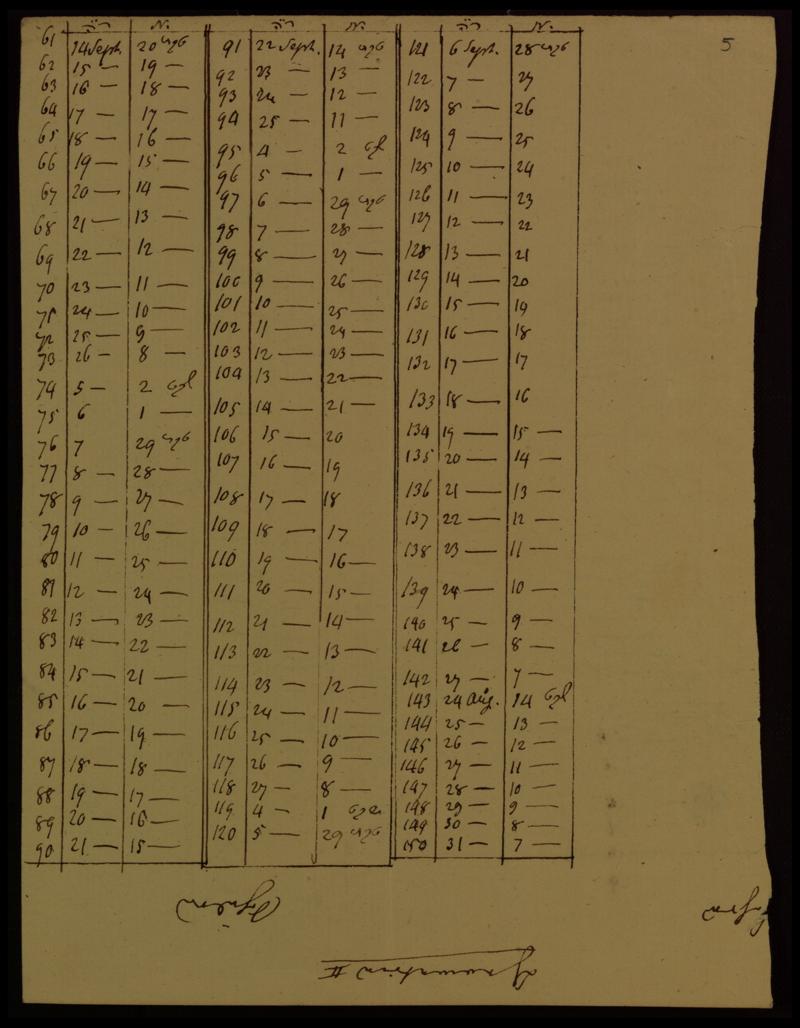 5
ר"ה N.
61 14 Sept. 20
62 15 — 19 —
63 16 — 18 —
64 17 — 17 —
65 18 — 16 —
66 19 — 15 —
67 20 — 14 —
68 21 — 13 —
69 22 — 12 —
70 23 — 11 —
71 24 — 10 —
72 25 — 9 —
73 26 — 8 —
74 5 — 2
75 6 1 —
76 7 29
77 8 — 28 —
78 9 — 27 —
79 10 — 26 —
80 11 — 25 —
81 12 — 24 —
82 13 — 23 —
83 14 — 22 —
84 15 — 21 —
85 16 — 20 —
86 17 — 19 —
87 18 — 18 —
88 19 — 17 —
89 20 — 16 —
90 21 — 15 —
ר"ה N.
91 22 Sept. 14
92 23 — 13 —
93 24 — 12 —
94 25 — 11 —
95 4 — 2
96 5 — 1 —
97 6 29
98 7 — 28 —
99 8 — 27 —
100 9 — 26 —
101 10 — 25 —
102 11 — 24 —
103 12 — 23 —
104 13 — 22 —
105 14 — 21 —
106 15 — 20
107 16 — 19
108 17 — 18
109 18 — 17
110 19 — 16 —
111 20 — 15 —
112 21 — 14 —
113 22 — 13 —
114 23 — 12 —
115 24 — 11 —
116 25 — 10 —
117 26 — 9 —
118 27 — 8 —
119 4 — 1
120 5 — 29
ר"ה N.
121 6 Sept. 28
122 7 — 27
123 8 — 26
124 9 — 25
125 10 — 24
126 11 — 23
127 12 — 22
128 13 — 21
129 14 — 20
130 15 — 19
131 16 — 18
132 17 — 17
133 18 — 16
134 19 — 15 —
135 20 — 14 —
136 21 — 13 —
137 22 — 12 —
138 23 — 11 —
139 24 — 10 —
140 25 — 9 —
141 26 — 8 —
142 27 — 7 —
143 24 Aug. 14
144 25 — 13 —
145 26 — 12 —
146 27 — 11 —
147 28 — 10 —
148 29 — 9 —
149 30 — 8 —
150 31 — 7 —
II